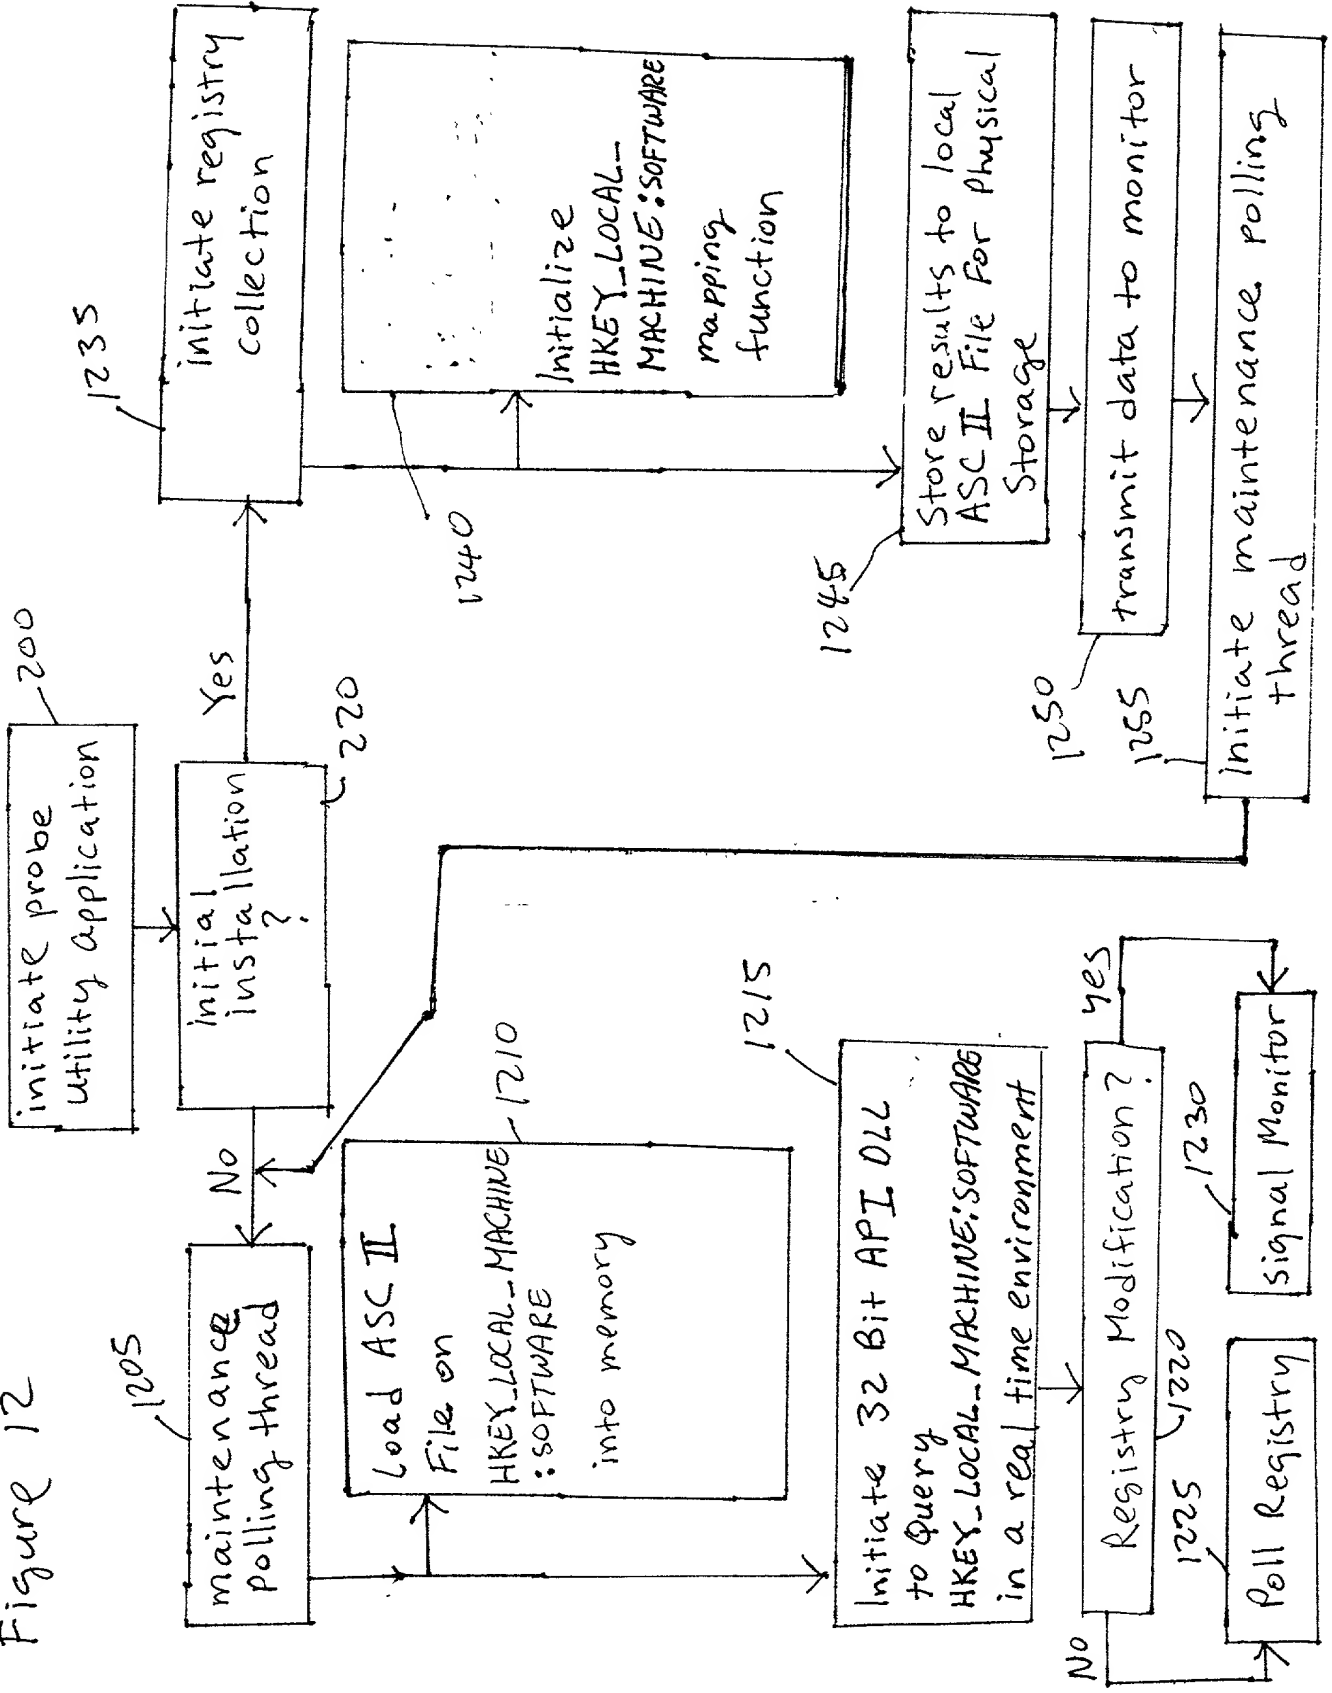 Figure 12
initiate probe
Utility application
200
initial
installation
?
220
No
Yes
maintenance
polling thread
1205
Load ASC II
File on
HKEY_LOCAL_MACHINE
:SOFTWARE
into memory
1210
Initiate 32 Bit API DLL
to Query
HKEY_LOCAL_MACHINE:SOFTWARE
in a real time environment
1215
Registry Modification?
1220
No
yes
Poll Registry
1225
Signal Monitor
1230
initiate registry
collection
1235
Initialize
HKEY_LOCAL_
MACHINE:SOFTWARE
mapping
function
1240
Store results to local
ASC II File For Physical
Storage
1245
transmit data to monitor
1250
initiate maintenance polling
thread
1255